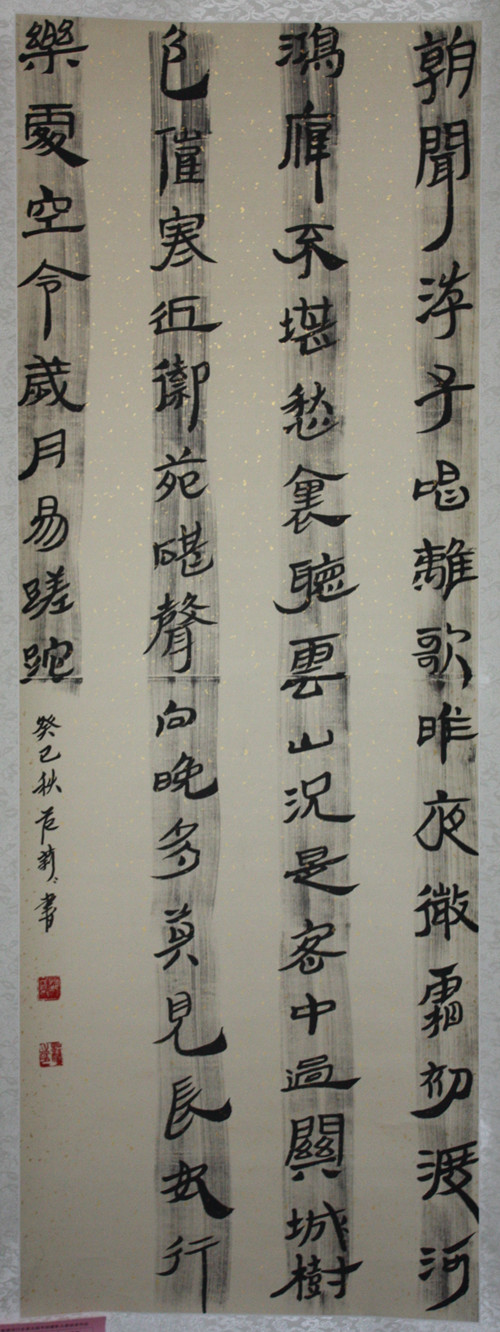 朝聞游子唱離歌昨夜微霜初渡河
鴻雁不堪愁裏聽雲山況是客中過關城樹
色催寒近御苑碪聲向晚多莫見長安行
樂處空令歲月易蹉跎
癸巳秋書